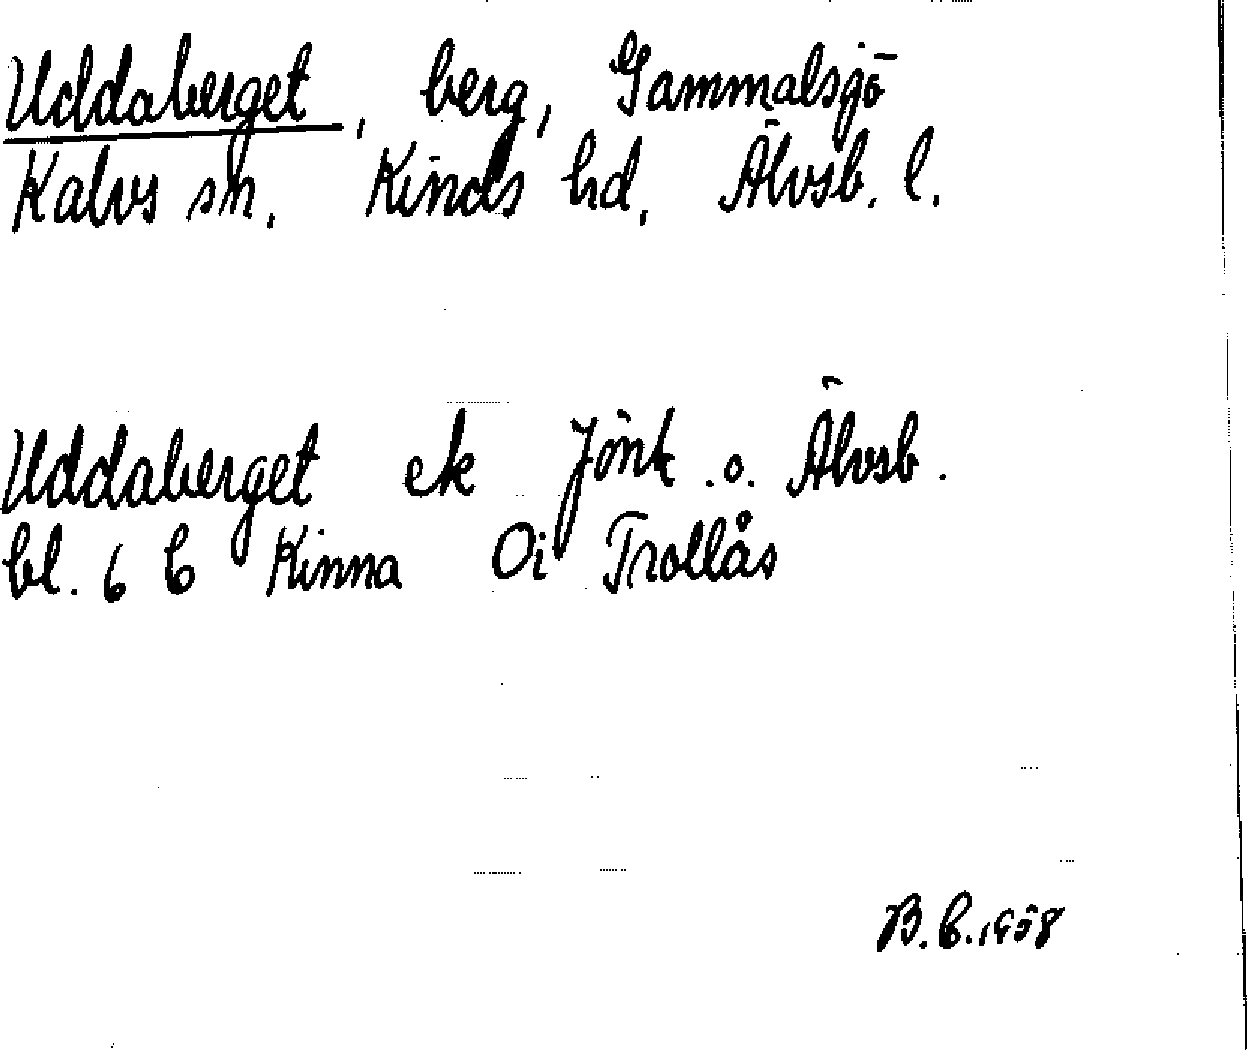 Uddaberget, berg, Gammalsjö
Kalvs sn. Kinds hd, Älvsb. l.
Uddaberget ek Jönk. o. Älvsb.
bl. 6 b Kinna Oi Trollås
B. E. 1958